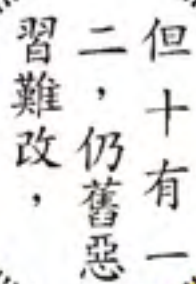 但十有一
二，仍舊惡
習難改，